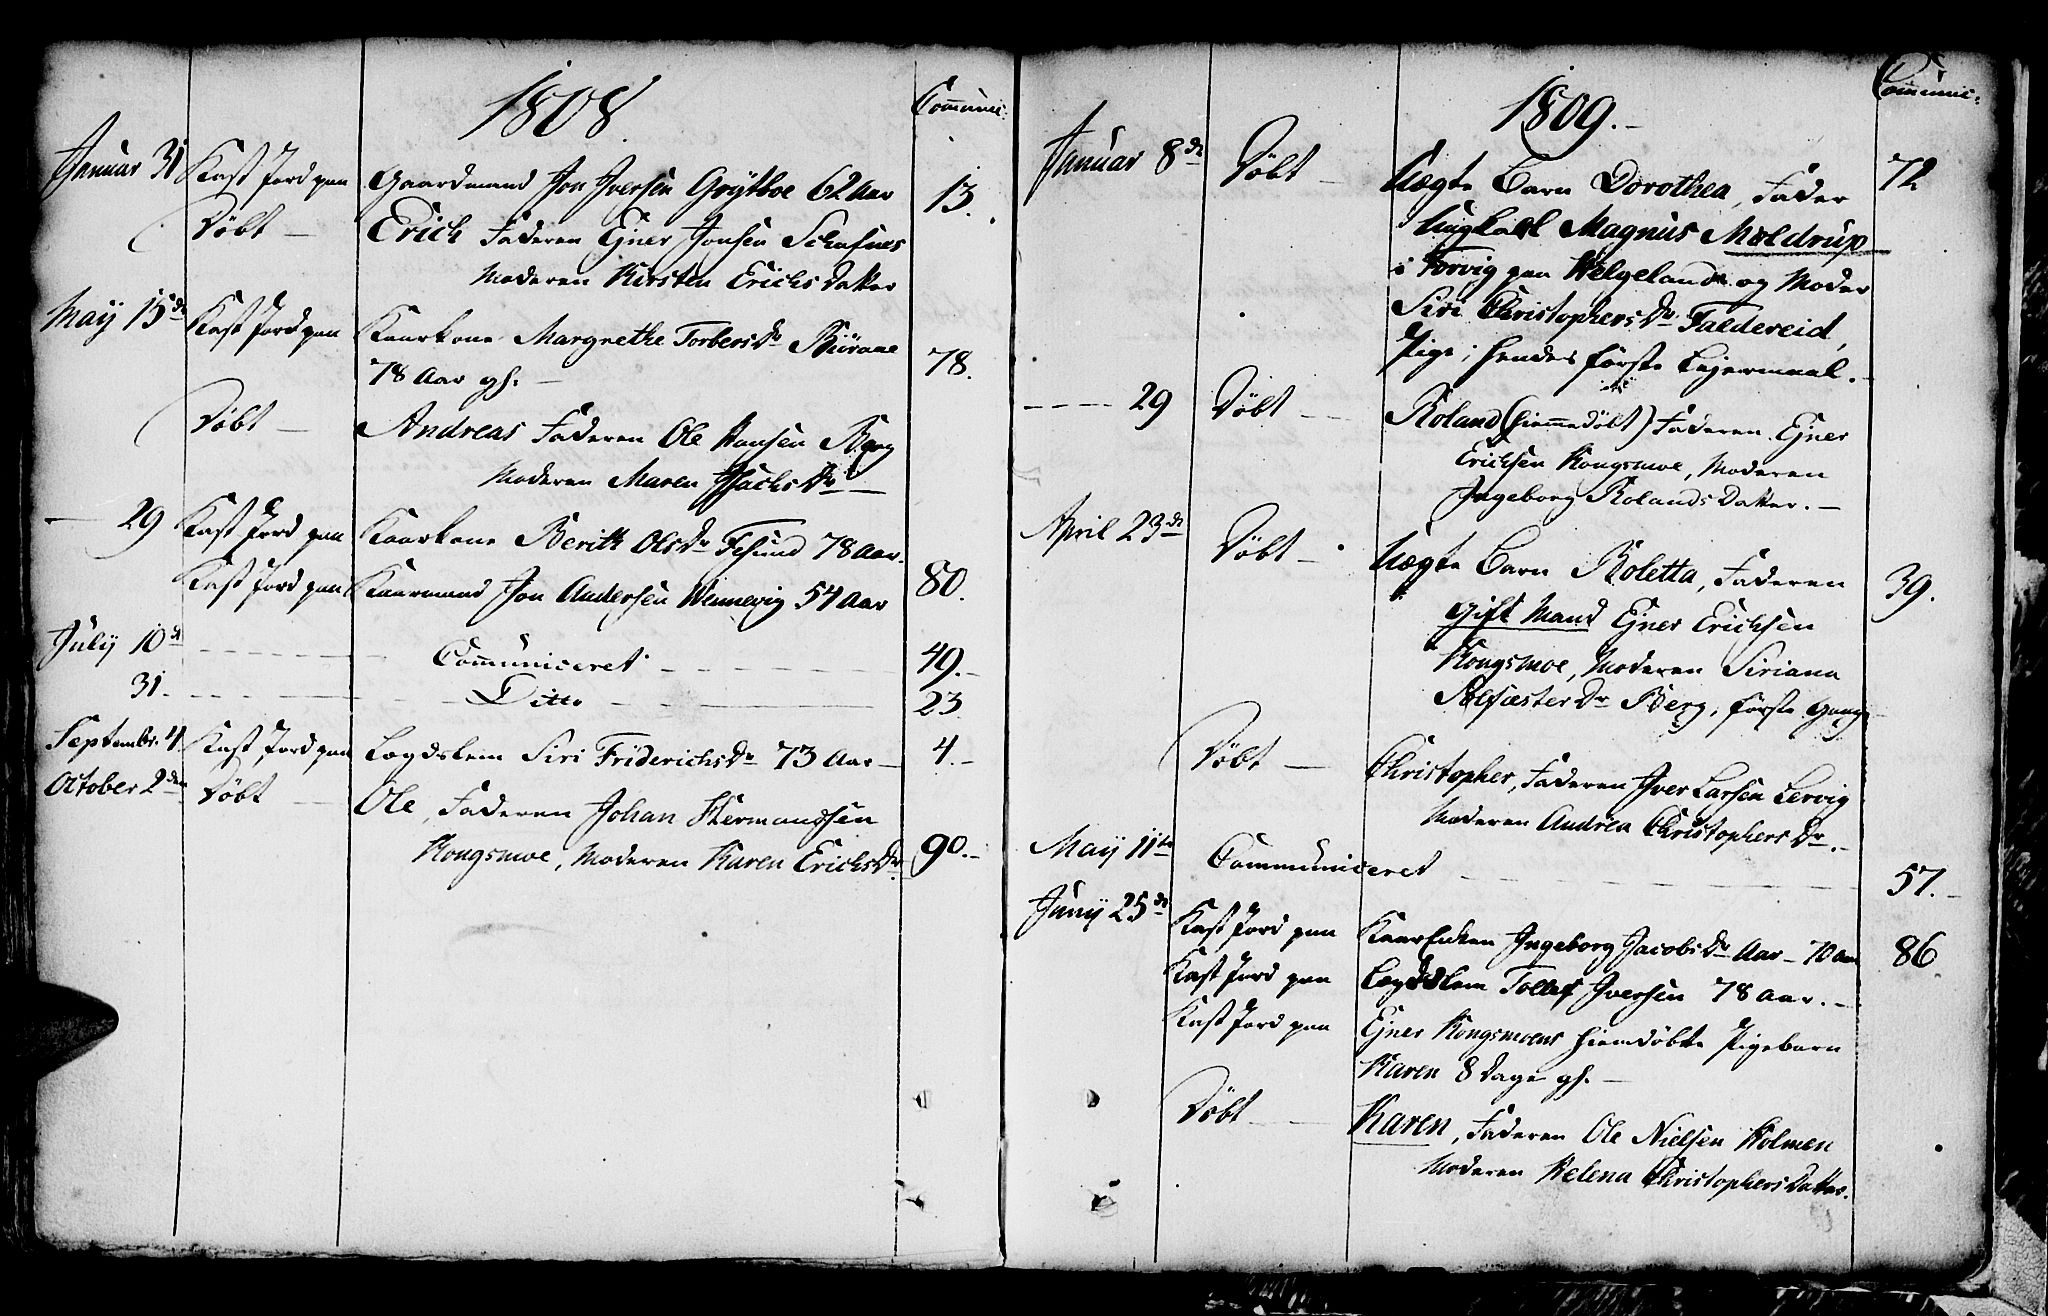 1808.
Communic:
Januar 31 Kast Jord paa Gaardmand Jon Iversen Grÿtboe 62 Aar 13.
Döbt — Erich Faderen Ejner Jonsen
Moderen Kirsten Erichs Datter
Maij 15de Kast Jord paa Kaarkone Margrethe TorbersDr
78 Aar gl. — 78.
Döbt — Andreas Faderen Ole Hansen Berg
Moderen Maren IsachsDr —
— 29 Kast Jord paa Kaarkone Berith OlsDr Fesund 78 Aar.
Kast Jord paa Kaarmand Jon Andersen Wennevig 54 Aar 80.
Julij 10de Communiceret 49. —
31. Ditto 23
Septembr. 4 Kast Jord paa Lægdslem Siri FriderichsDr 73 Aar — 4. —
October 2den Döbt Ole, Faderen Johan Hermandsen
Kongsmoe, Moderen Karen ErichsDr. 90. —
1809. —
Communic:
Januar 8de Döbt — Uægte Barn Dorothea, Fader 72
Ungkarl Magnus Moldrup
i Torvig paa Helgeland og Moder
Siri ChristophersDr Faldereid,
Pige; hendes første Lejermaal. —
— 29 Döbt — Roland (hiemmedöbt) Faderen Ejner
Erichsen Kongsmoe, Moderen
Ingeborg Rolands Datter. —
April 23de Döbt — Uægte Barn Roletta, Faderen 39.
Gift Mand Ejner Erichsen
Kongsmoe, Moderen Siriana
SølfæsterDr Berg, første Gang
Döbt — Christopher, Faderen Iver Larsen Lervig
Moderen Andrea ChristophersDr. —
Maij 11te Communiceret 57. —
Junij 25de Kast Jord paa KaarEnken Ingeborg JacobsDr Aar — 70 Aar 86
Kast Jord paa Lægdslem Tollef Iversen 78 Aar. —
Kast Jord paa Ejner Kongsmoens hiemdöbte Pigebarn
Karen 8 Dage gl. —
Döbt — Karen, Faderen Ole Nielsen Holmen
Moderen Helena Christophers Datter.